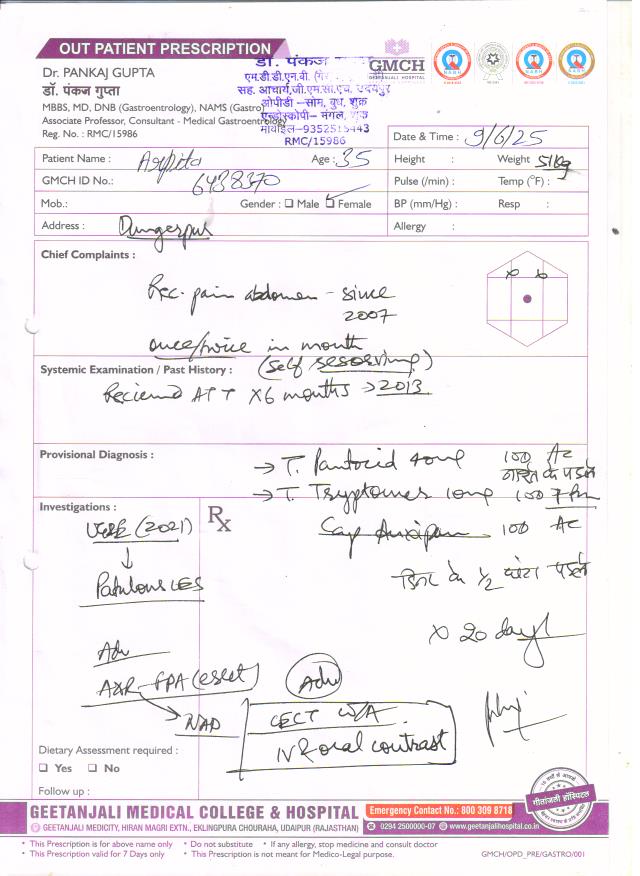 OUT PATIENT PRESCRIPTION
Dr. PANKAJ GUPTA
डॉ. पंकज गुप्ता
MBBS, MD, DNB (Gastroentrology), NAMS (Gastro)
Associate Professor, Consultant - Medical Gastroentrology
Reg. No. : RMC/15986
डॉ. पंकज
एम.डी.डी.एन.वी.
सह. आचार्य,जी.एम.सी.एच. उदयपुर
ओपीडी –सोम, बुध, शुक्र
एन्डोस्कोपी– मंगल,
मोबाइल–9352515443
RMC/15986
GMCH
GEETANJALI HOSPITAL
NABH
NABH
NABH
Date & Time : 9/6/25
Patient Name : Arpita Age : 35
Height : Weight 51kg
GMCH ID No.: 6438370
Pulse (/min) : Temp (°F) :
Mob.: Gender : Male Female
BP (mm/Hg) : Resp :
Address : Dungerpur
Allergy :
Chief Complaints :
Rec. pain abdomen - since
2007
once/twice in month
(self resolving)
Systemic Examination / Past History :
Recieved ATT x6 months → 2013
Provisional Diagnosis :
→ T. Pantocid 40mg 100 AC
→ T. Tryptomer 10mg 100 7 PM
Investigations :
Rx
UGIE (2021)
↓
Patulous LES
Cap 100 AC
डिनर के 1/2 घंटा पहले
x 20 days
Adv
AXR - FPA (erect)
→ NAD
Adv
CECT W/A
IV & oral contrast
Dietary Assessment required :
Yes No
Follow up :
गीतांजली हॉस्पिटल
GEETANJALI MEDICAL COLLEGE & HOSPITAL
Emergency Contact No.: 800 309 8718
GEETANJALI MEDICITY, HIRAN MAGRI EXTN., EKLINGPURA CHOURAHA, UDAIPUR (RAJASTHAN)
0294 2500000-07 www.geetanjalihospital.co.in
* This Prescription is for above name only * Do not substitute * If any allergy, stop medicine and consult doctor
* This Prescription valid for 7 Days only * This Prescription is not meant for Medico-Legal purpose.
GMCH/OPD_PRE/GASTRO/001